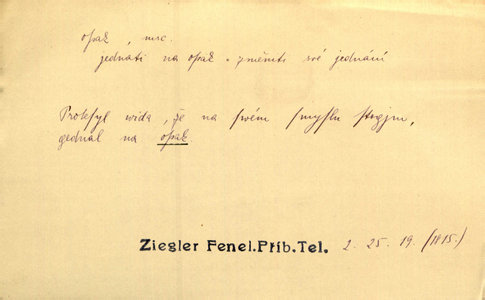 opak, msc.
jednati na opak - změniti své jednání
Proksyl wida, že na swém smyslu stogjm,
gednal na opak.
Ziegler Fenel.Příb.Tel. 2. 25. 19. (1815.)